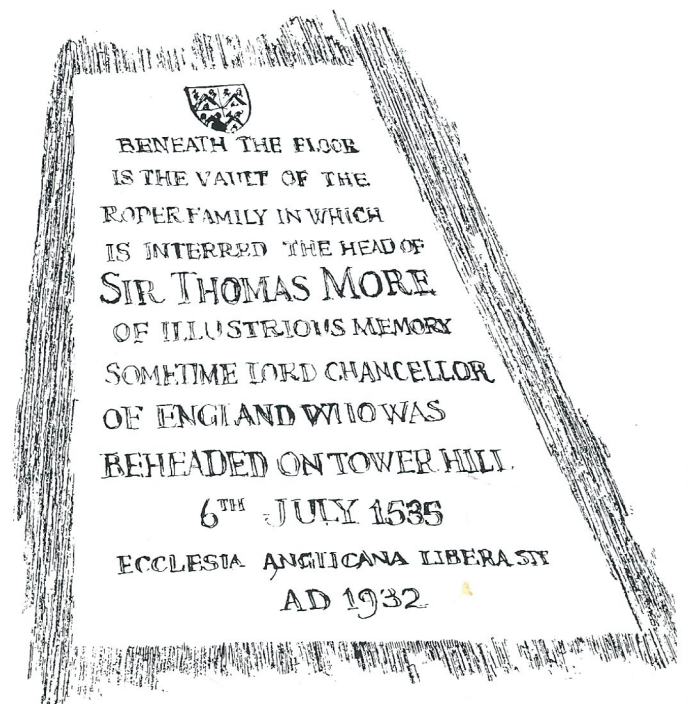 BENEATH THE FLOOR
IS THE VAULT OF THE
ROPER FAMILY IN WHICH
IS INTERRED THE HEAD OF
SIR THOMAS MORE
OF ILLUSTRIOUS MEMORY
SOMETIME LORD CHANCELLOR
OF ENGLAND WHO WAS
BEHEADED ON TOWER HILL
6TH JULY 1535
ECCLESIA ANGLICANA LIBERA SIT
AD 1932